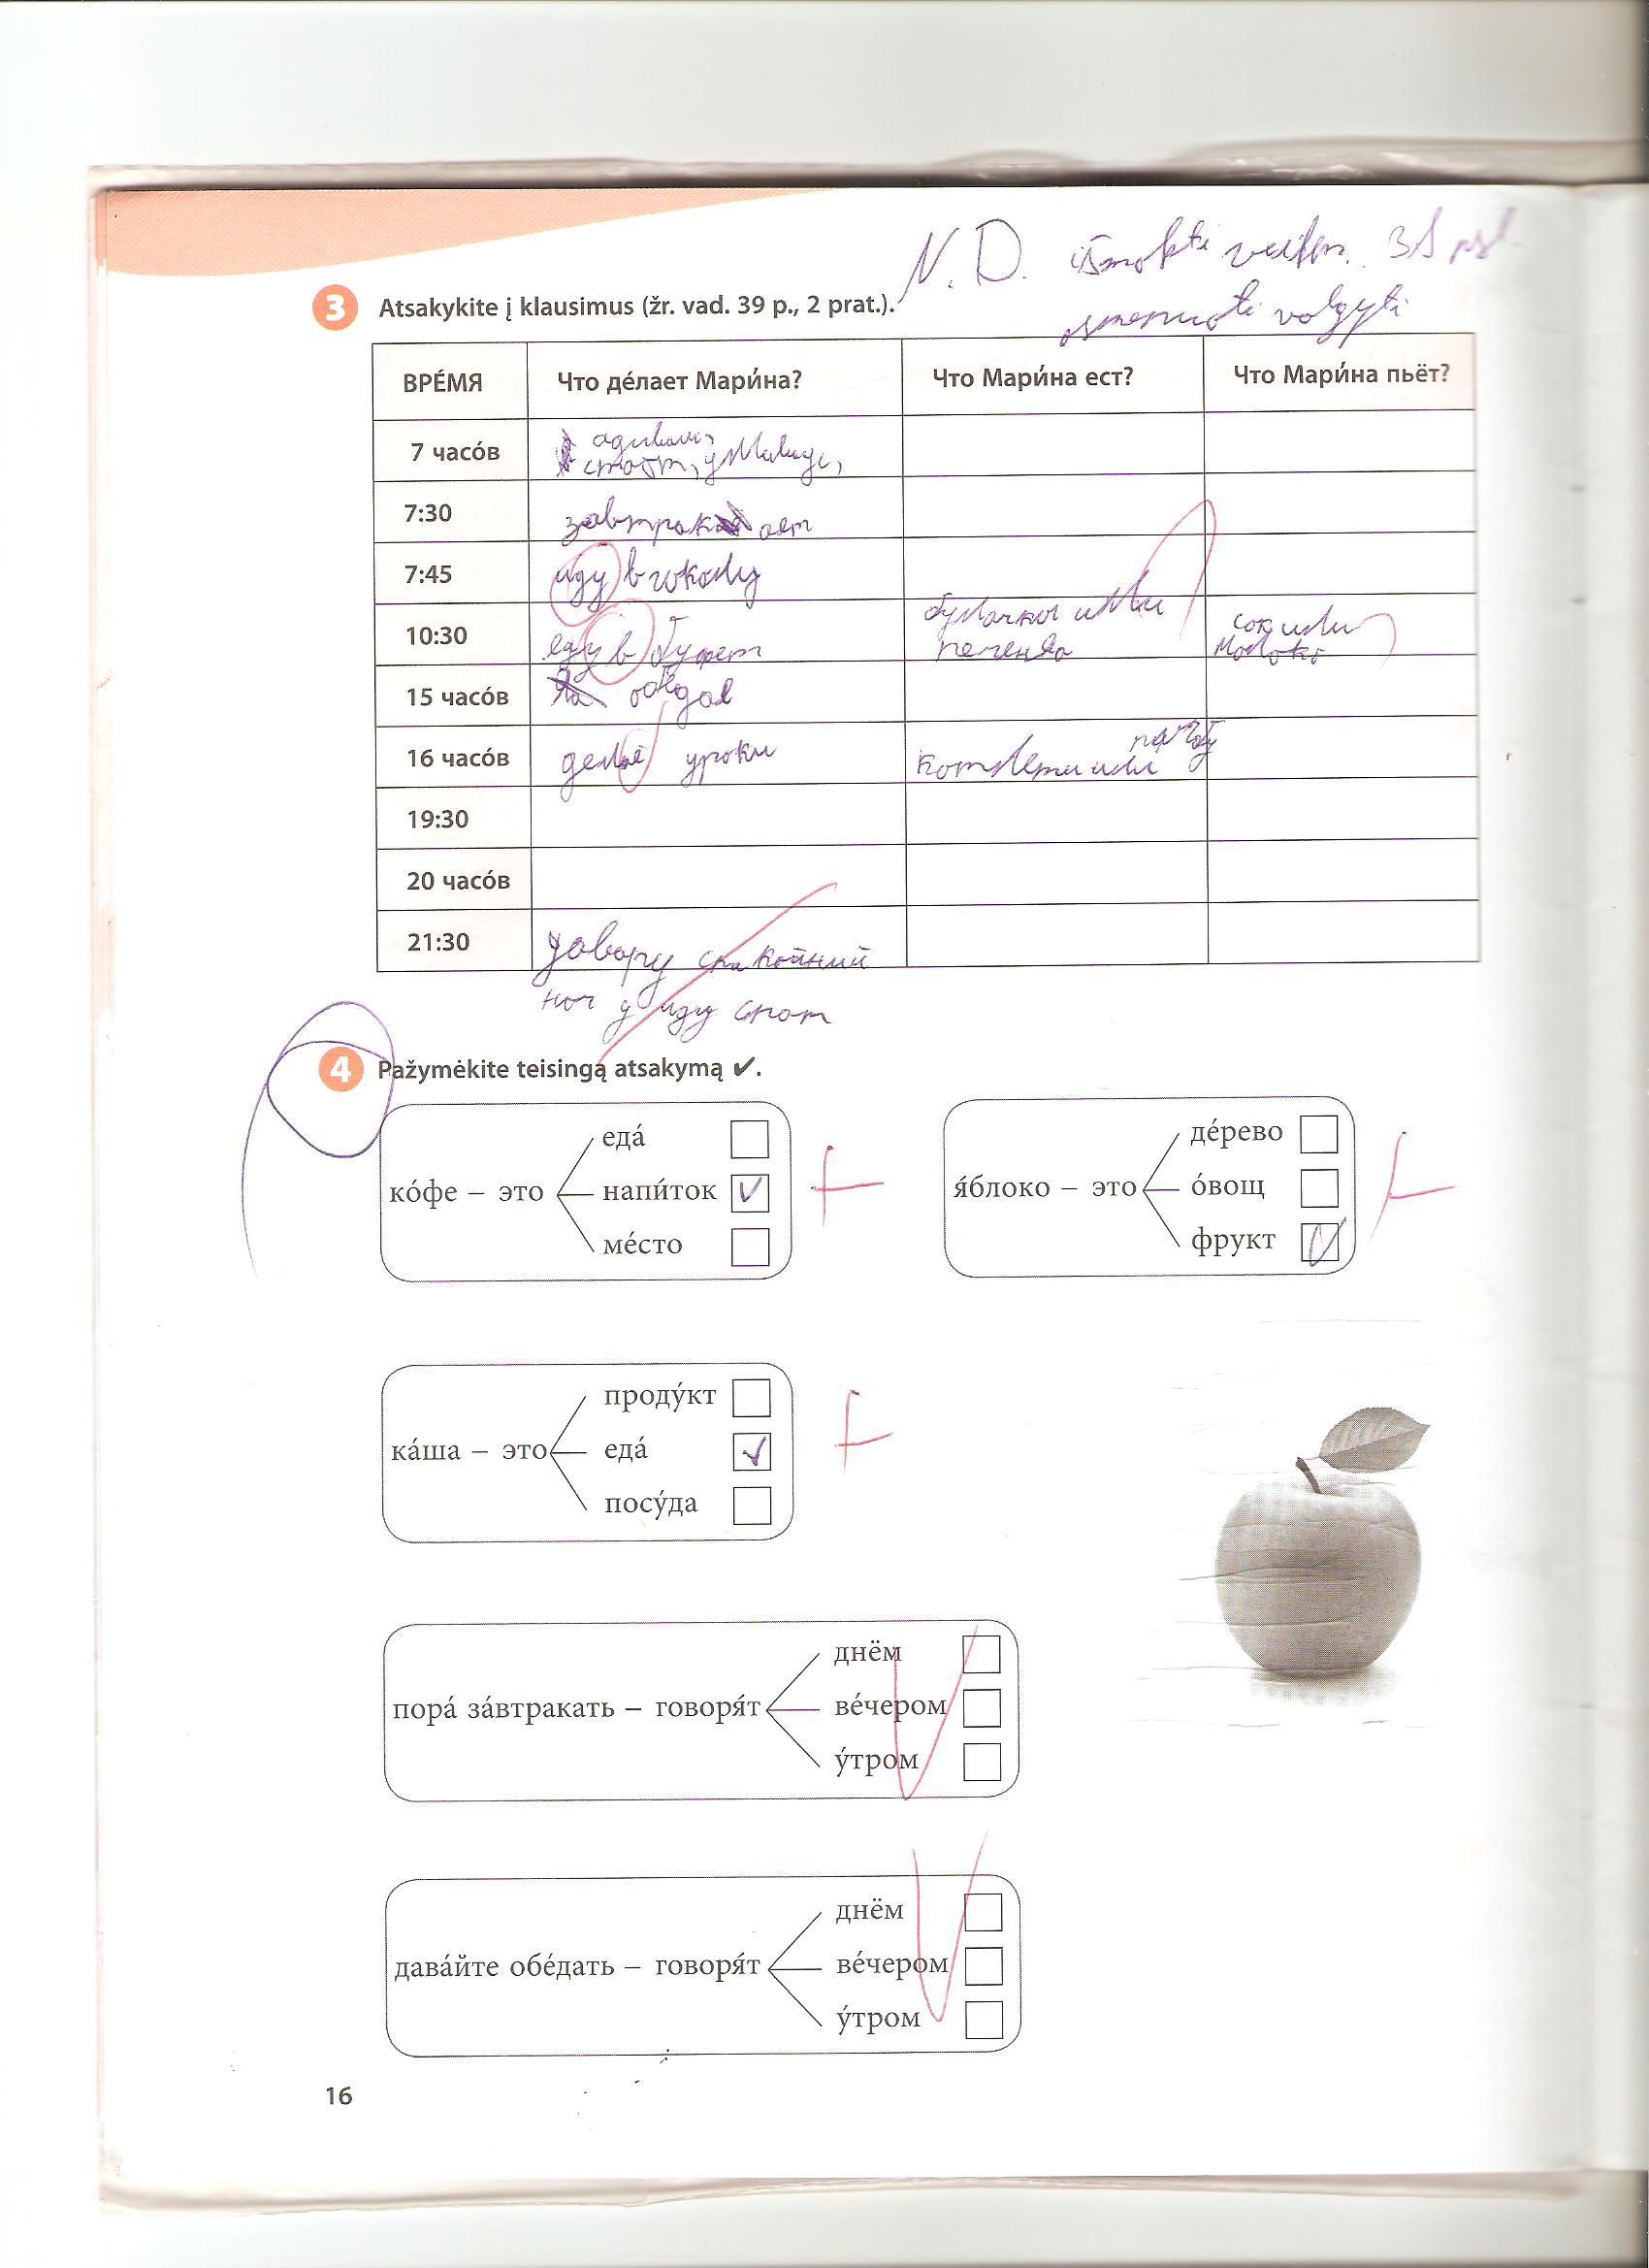 N. D. išmokti veiksm. 38 psl.
asmenuoti valgyti
3 Atsakykite į klausimus (žr. vad. 39 p., 2 prat.).
ВРЕ́МЯ Что де́лает Мари́на? Что Мари́на ест? Что Мари́на пьёт?
7 часо́в
7:30 завтракает
7:45 иду в школу
10:30 еду в буфет булочки или печенье сок или молоко
15 часо́в обедае
16 часо́в делае уроки котлети или
19:30
20 часо́в
21:30 говору спакойний
ноч у иду спат
4 Pažymėkite teisingą atsakymą ✔.
ко́фе – это
еда́
напи́ток
ме́сто
я́блоко – это
де́рево
о́вощ
фрукт
ка́ша – это
проду́кт
еда́
посу́да
пора́ за́втракать – говоря́т
днём
ве́чером
у́тром
дава́йте обе́дать – говоря́т
днём
ве́чером
у́тром
16